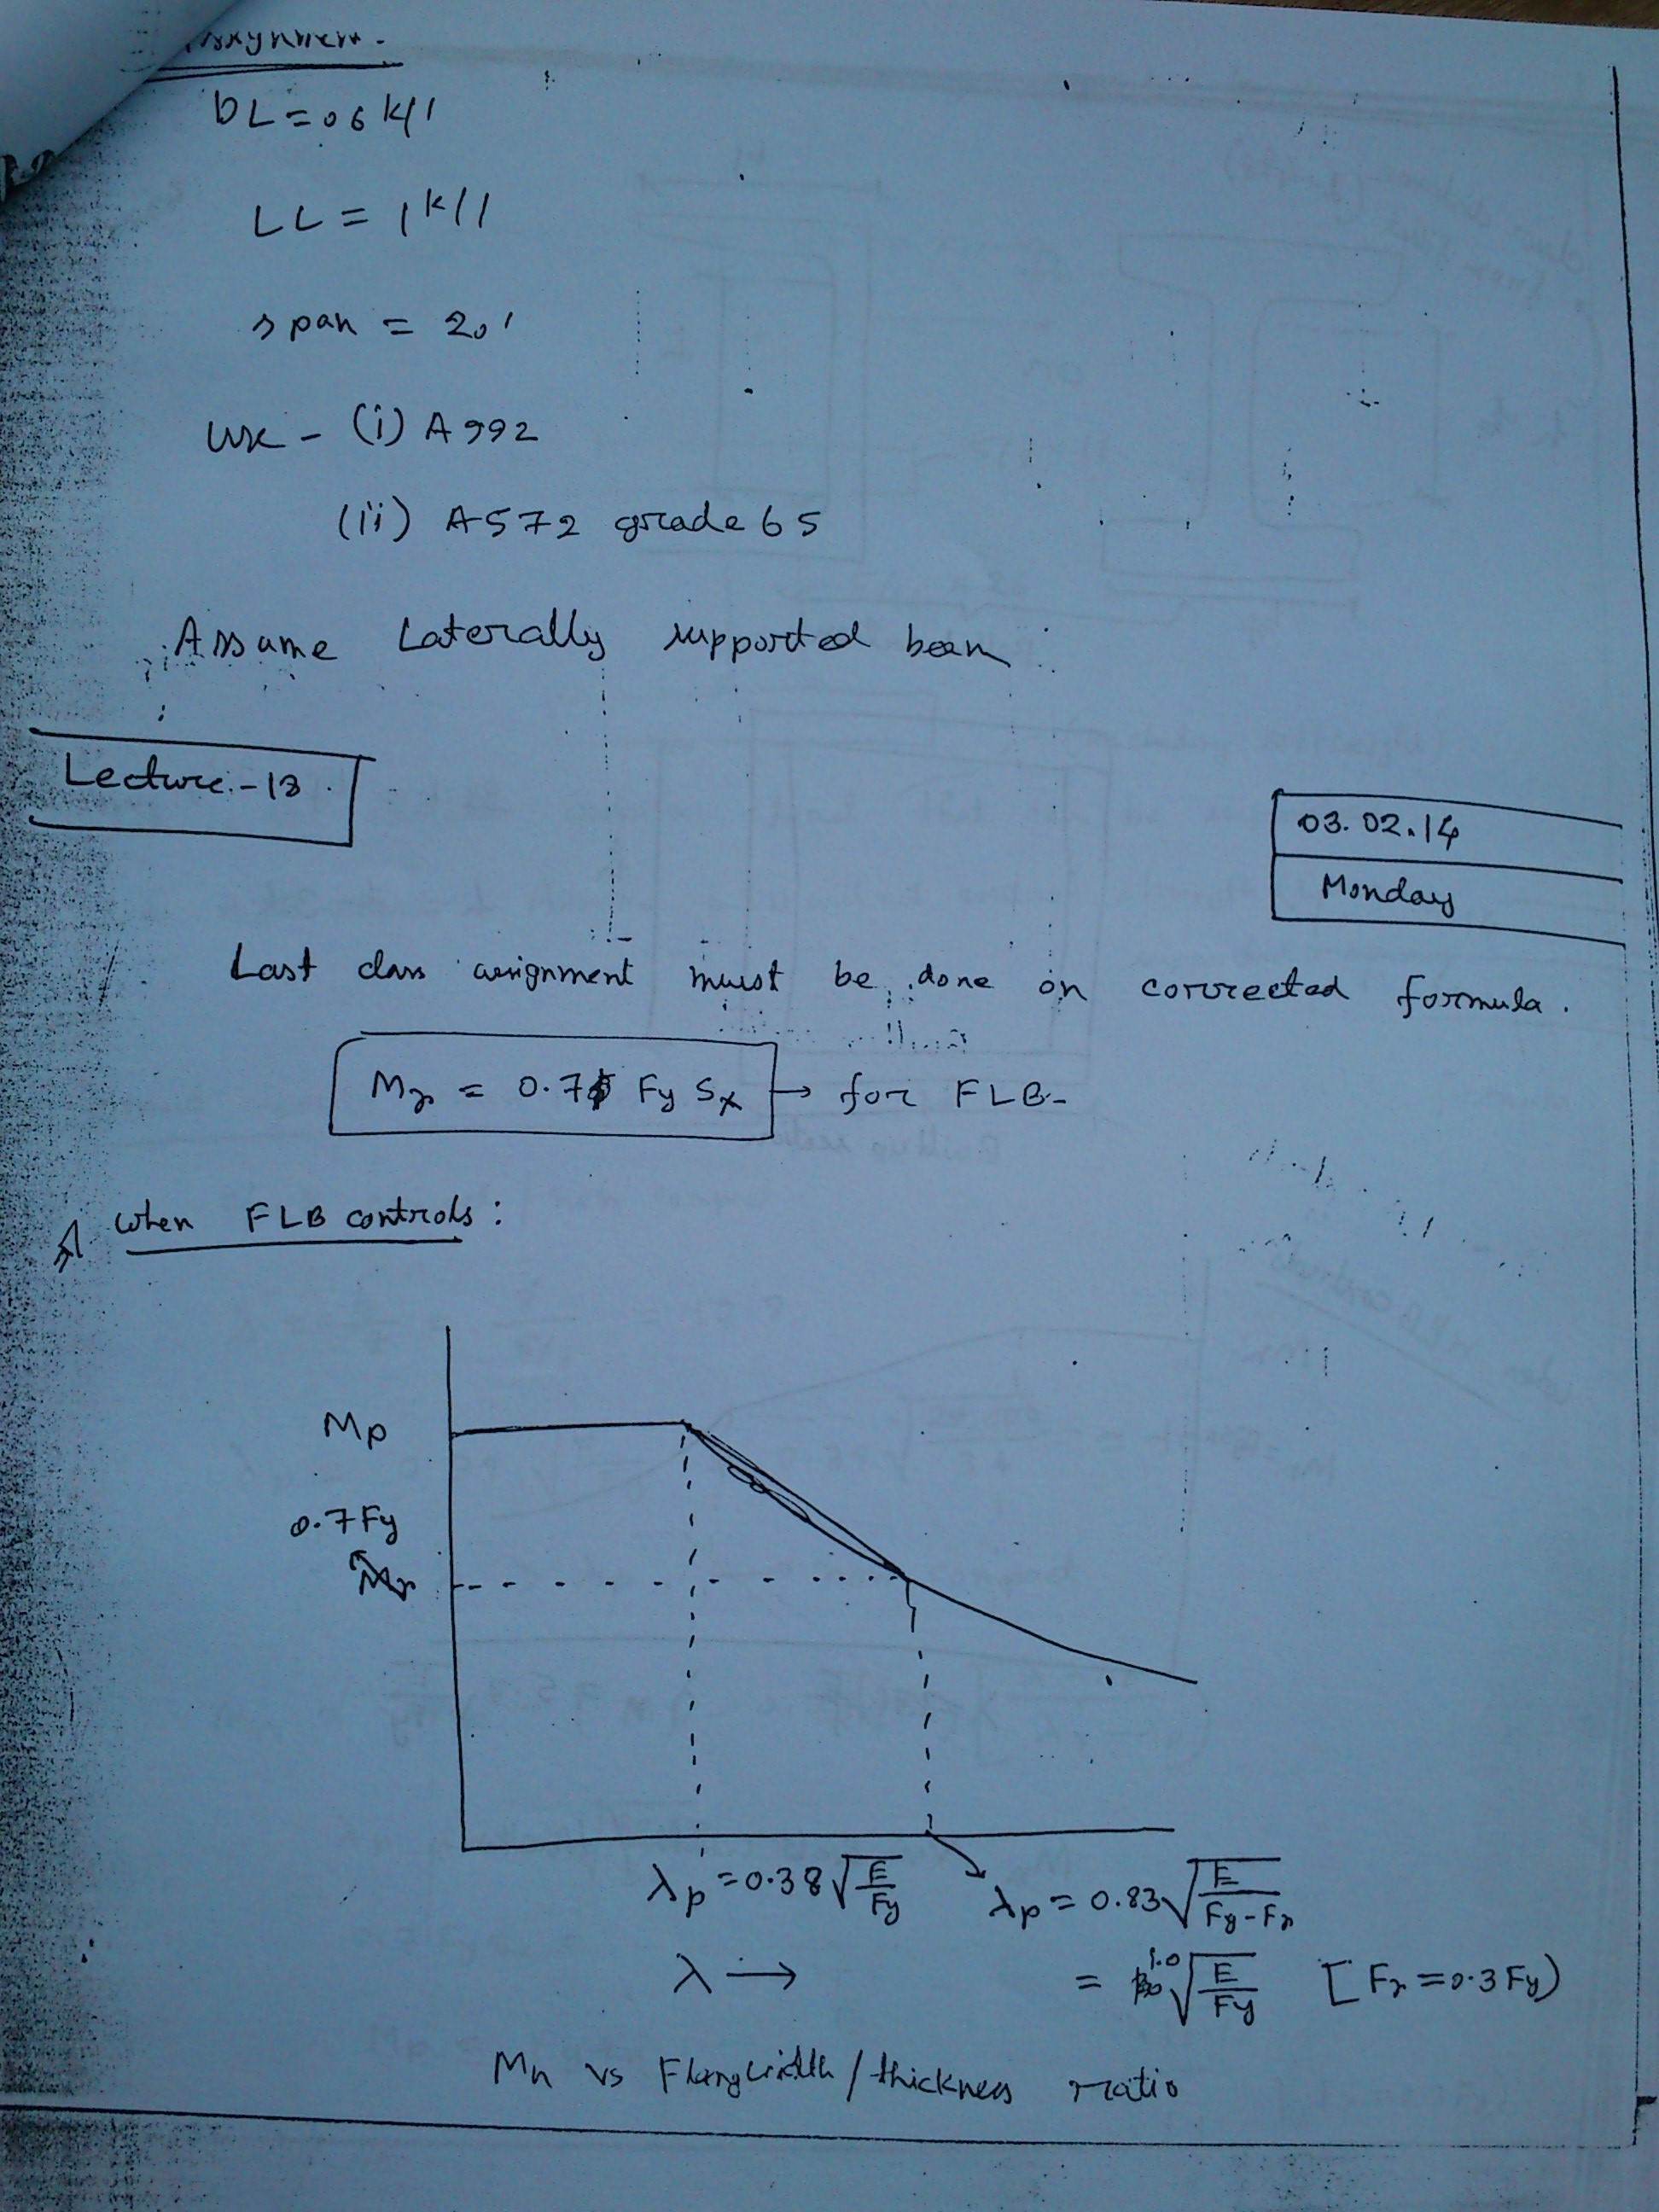 Assignment.
DL = 0.6 k/'
LL = 1 k/'
span = 20'
use - (i) A992
(ii) A572 grade 65
Assume Laterally supported beam
Lecture - 13
03.02.14
Monday
Last class assignment must be done on corrected formula.
Mr = 0.7 Fy Sx → for FLB
When FLB controls:
Mp
0.7Fy
Mr
λp = 0.38√(E/Fy)
λp = 0.83√(E/(Fy-Fr))
λ →
= 1.0√(E/Fy) [Fr = 0.3Fy)
Mn vs Flang width/thickness ratio